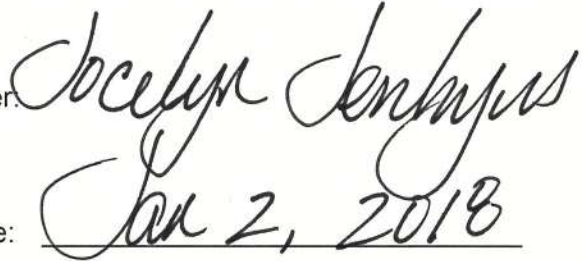 er: Jocelyn Jenkyns
e: Jan 2, 2018